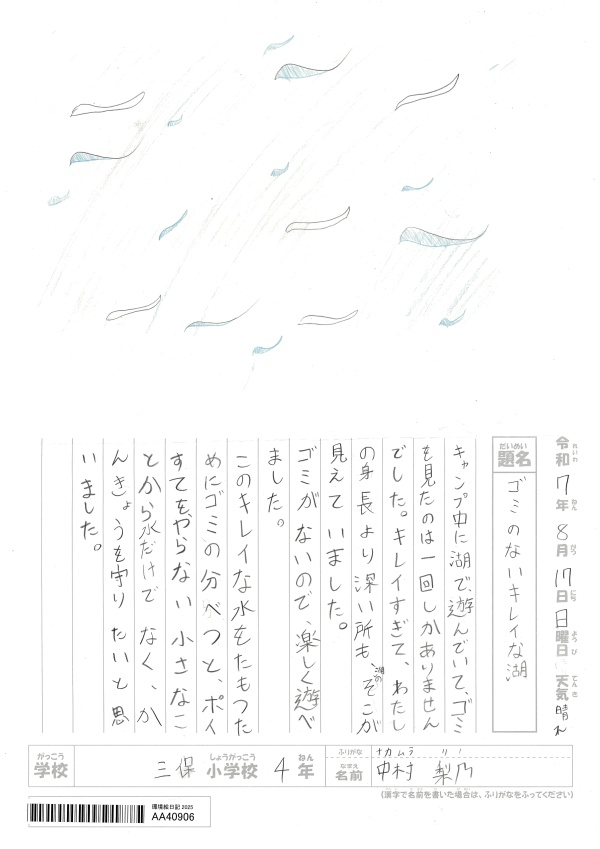 令和7年8月17日日曜日 天気 晴れ
れいわ ねん がつ にち ようび てんき
だいめい
題名
ゴミのないキレイな湖
キャンプ中に湖で、遊んでいて、ゴミ
を見たのは一回しかありません
でした。キレイすぎて、わたし
の身長より深い所も、湖のそこが
見えていました。
ゴミがないので、楽しく遊べ
ました。
このキレイな水をたもつた
めにゴミの分べつと、ポイ
すてをやらない小さなこ
とから水だけでなく、か
んきょうを守りたいと思
いました。
がっこう 学校 三保 しょうがっこう 小学校 4 ねん 年
ふりがな ナカムラ リノ
なまえ 名前 中村 梨乃
(漢字で名前を書いた場合は、ふりがなをふってください)
環境絵日記 2025
AA40906